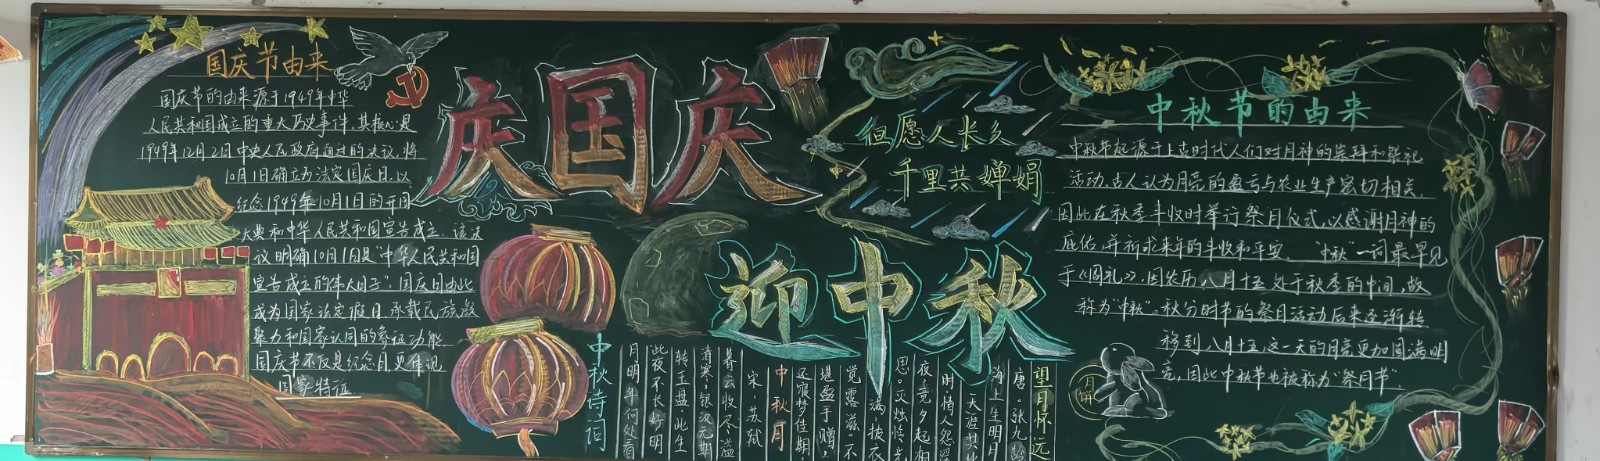 国庆节由来
国庆节的由来源于1949年中华
人民共和国成立的重大历史事件,其核心是
1949年12月2日中央人民政府通过的决议,将
10月1日确立为法定国庆日,以
纪念1949年10月1日的开国
大典和中华人民共和国宣告成立。该决
议明确10月1日是"中华人民共和国
宣告成立的伟大日子",国庆日由此
成为国家法定假日,承载民族凝
聚力和国家认同的象征功能
国庆节不仅是纪念日,更体现
国家特征
庆国庆
迎中秋
但愿人长久
千里共婵娟
中秋节的由来
中秋节起源于上古时代人们对月神的崇拜和祭祀
活动,古人认为月亮的盈亏与农业生产密切相关,
因此在秋季丰收时举行祭月仪式,以感谢月神的
庇佑,并祈求来年的丰收和平安。"中秋"一词最早见
于《周礼》,因农历八月十五处于秋季的中间,故
称为"中秋"。秋分时节的祭月活动后来逐渐转
移到八月十五,这一天的月亮更加圆满明
亮,因此中秋节也被称为"祭月节"。
月饼
望月怀远
唐。张九龄
海上生明月
,天涯共
时。情人怨遥
夜,竟夕起相
思。灭烛怜光
满,披衣
觉露滋。不
堪盈手赠,
还寝梦佳期。
中秋月
宋·苏轼
暮云收尽溢
清寒,银汉无
转玉盘。此生
此夜不长好,明
月明年何处看
中秋诗词